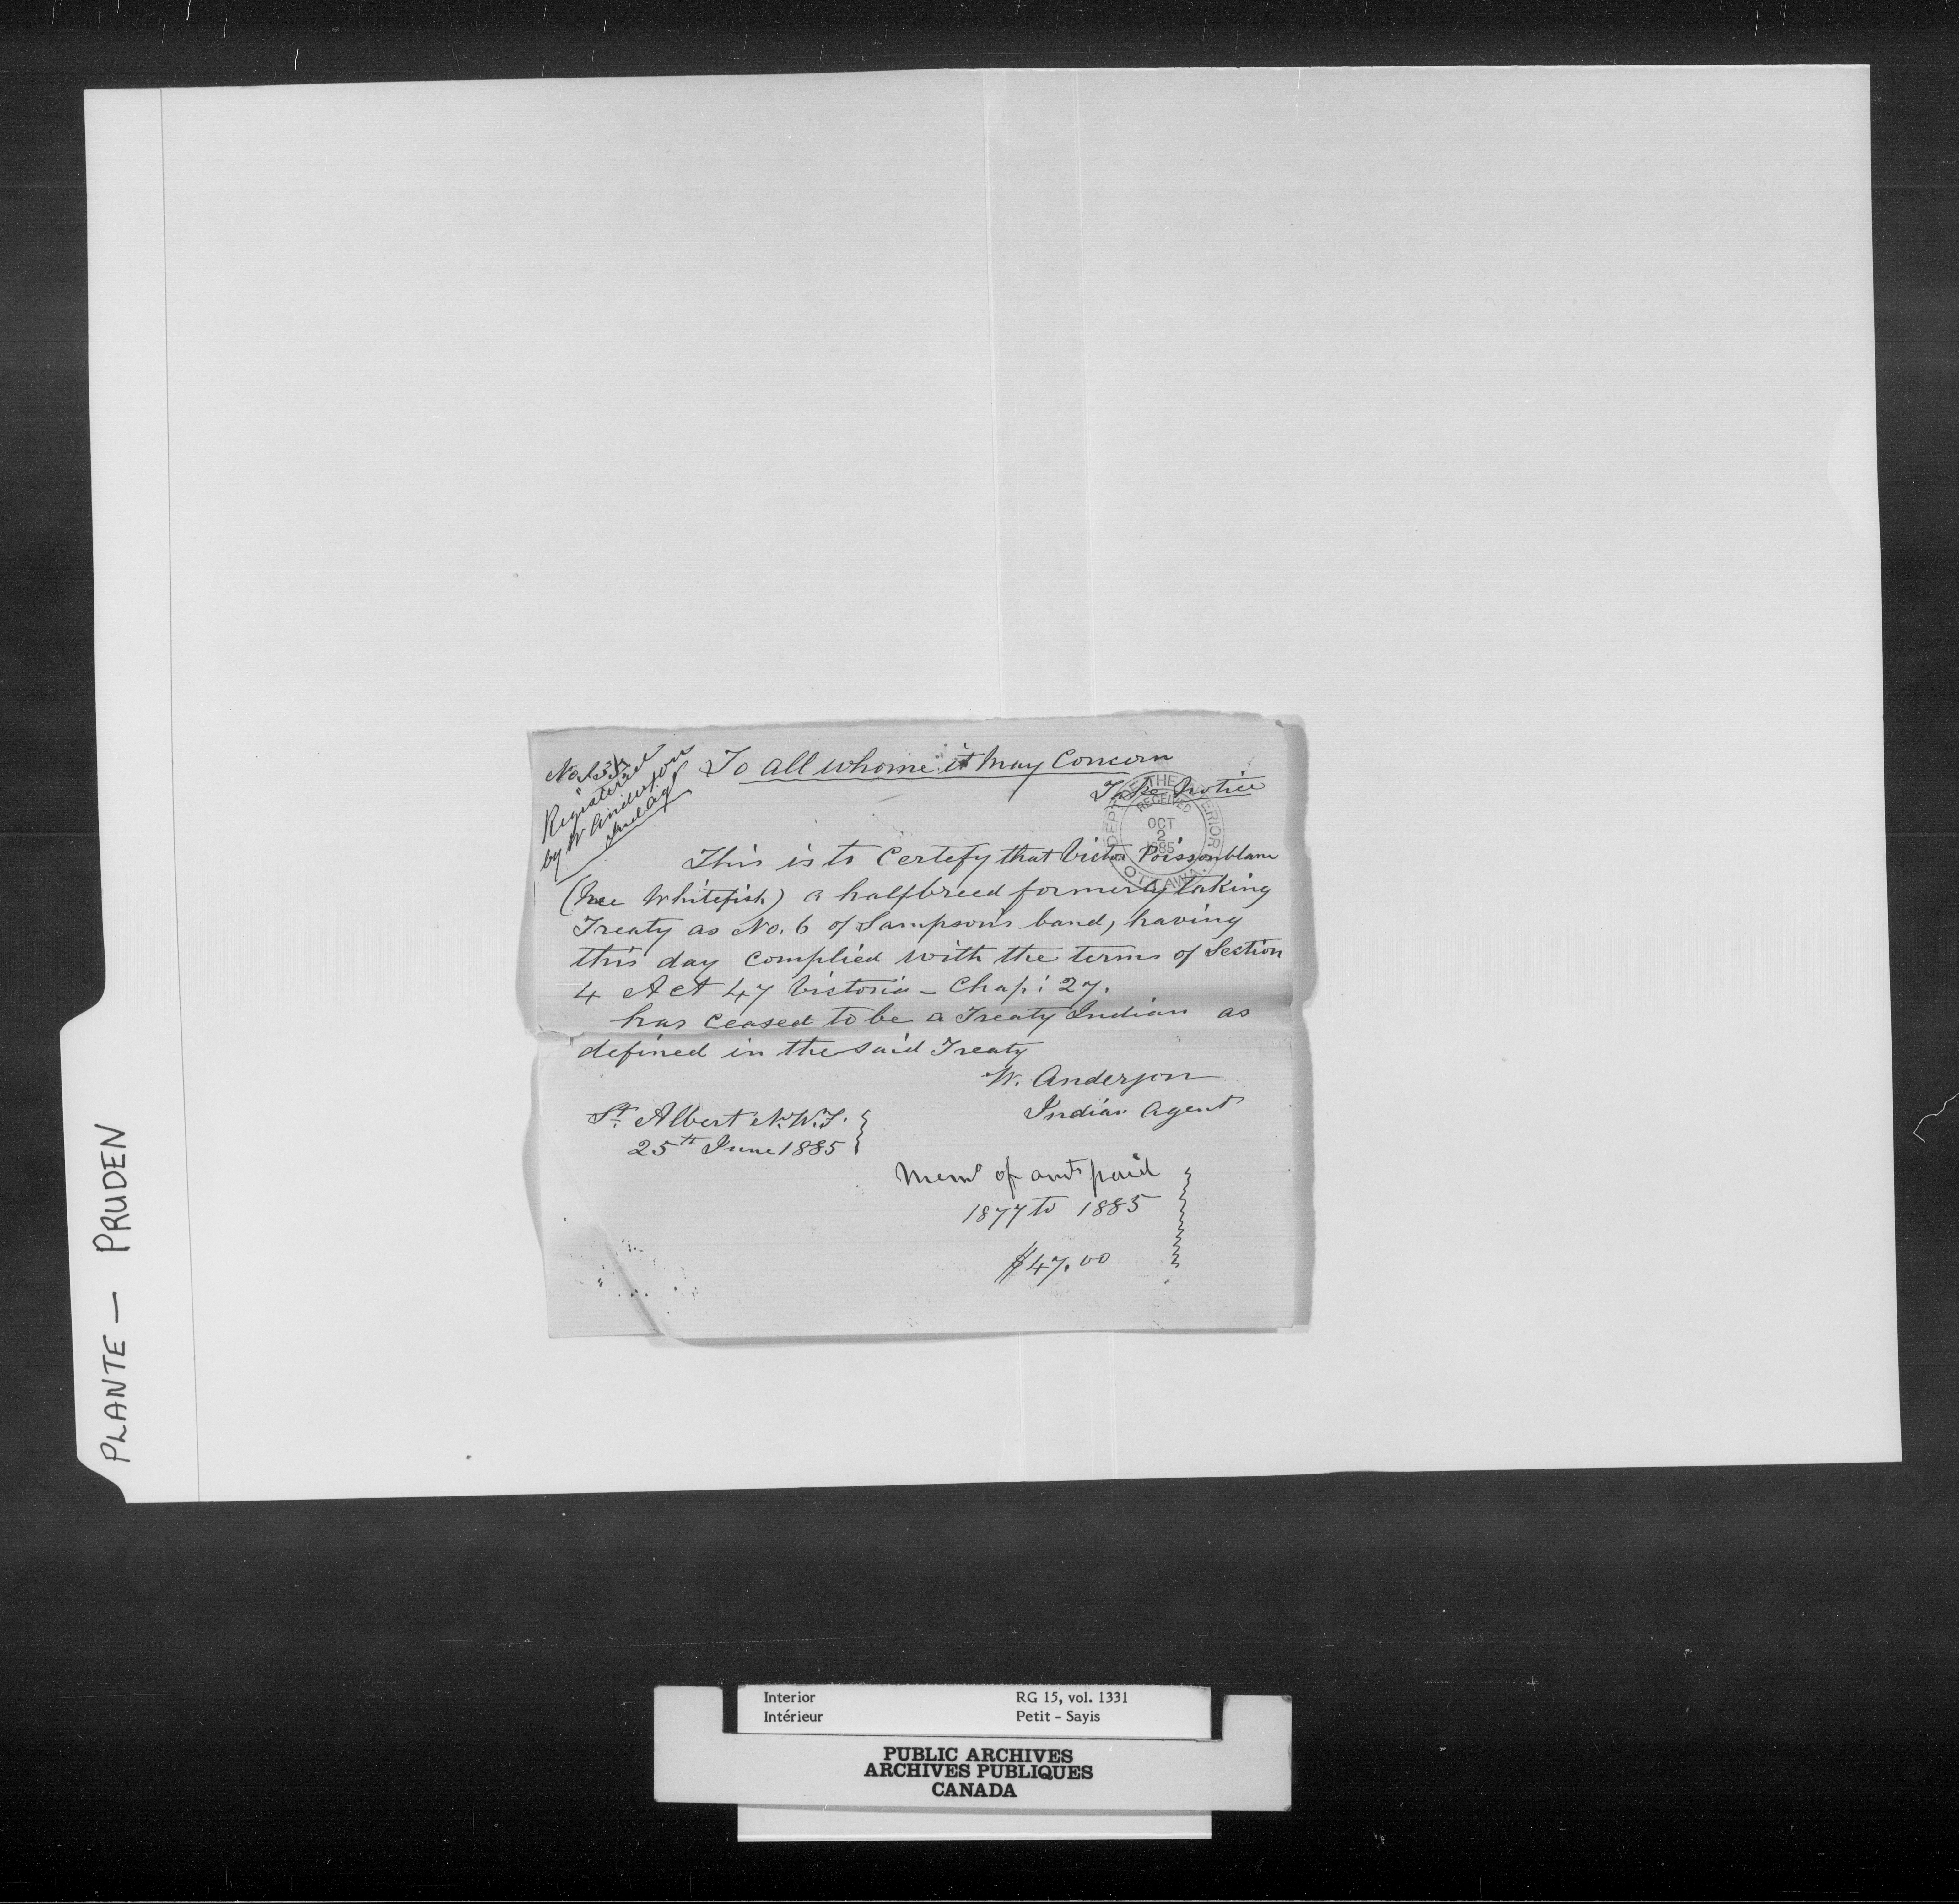 No. 154
Registered
by W Anderson
Ind. Agt
To all whome it May Concern
Take Notice
DEPT OF THE INTERIOR
RECEIVED
OCT
2
1885
OTTAWA.
This is to Certefy that Victor Poissonblanc
(nee Whitefish) a halfbreed formerly taking
Treaty as No. 6 of Sampson's band, having
this day complied with the terms of Section
4 Act 47 Victoria - Chap: 27.
has ceased to be a Treaty Indian as
defined in the said Treaty
W. Anderson
Indian Agent
St. Albert N.W.T.
25th June 1885
Memo of amt paid
1877 to 1885
$47.00
PLANTE — PRUDEN
Interior RG 15, vol. 1331
Intérieur Petit - Sayis
PUBLIC ARCHIVES
ARCHIVES PUBLIQUES
CANADA